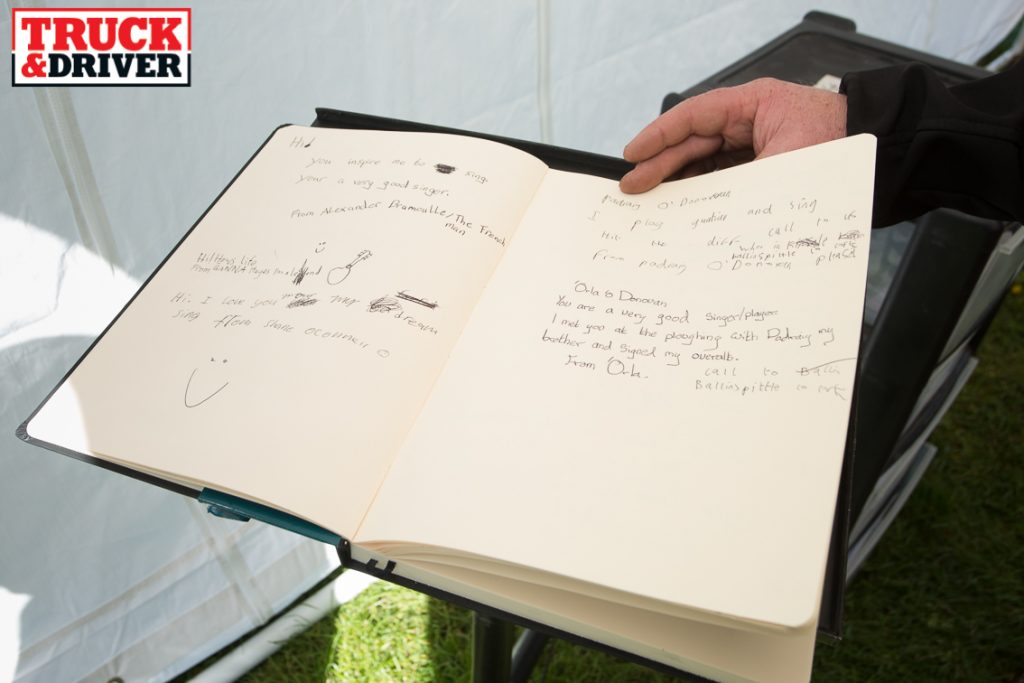 TRUCK
&DRIVER
Hi
you inspire me to sing.
your a very good singer.
From Alexander Dramoulle/The French
man
From
Hi. I love you my
dream
sing from shane oconneir
Padraig O'Donovan
I play guather and sing
call to us
Hit the diff
who is
Ballinspittle in cork
From padraig O'Donovan please
Orla to Donovan
You are a very good singer/player
I met you at the ploughing with Padraig my
bother and signed my overalls.
From Orla.
call to Balli
Ballinspittle in cork